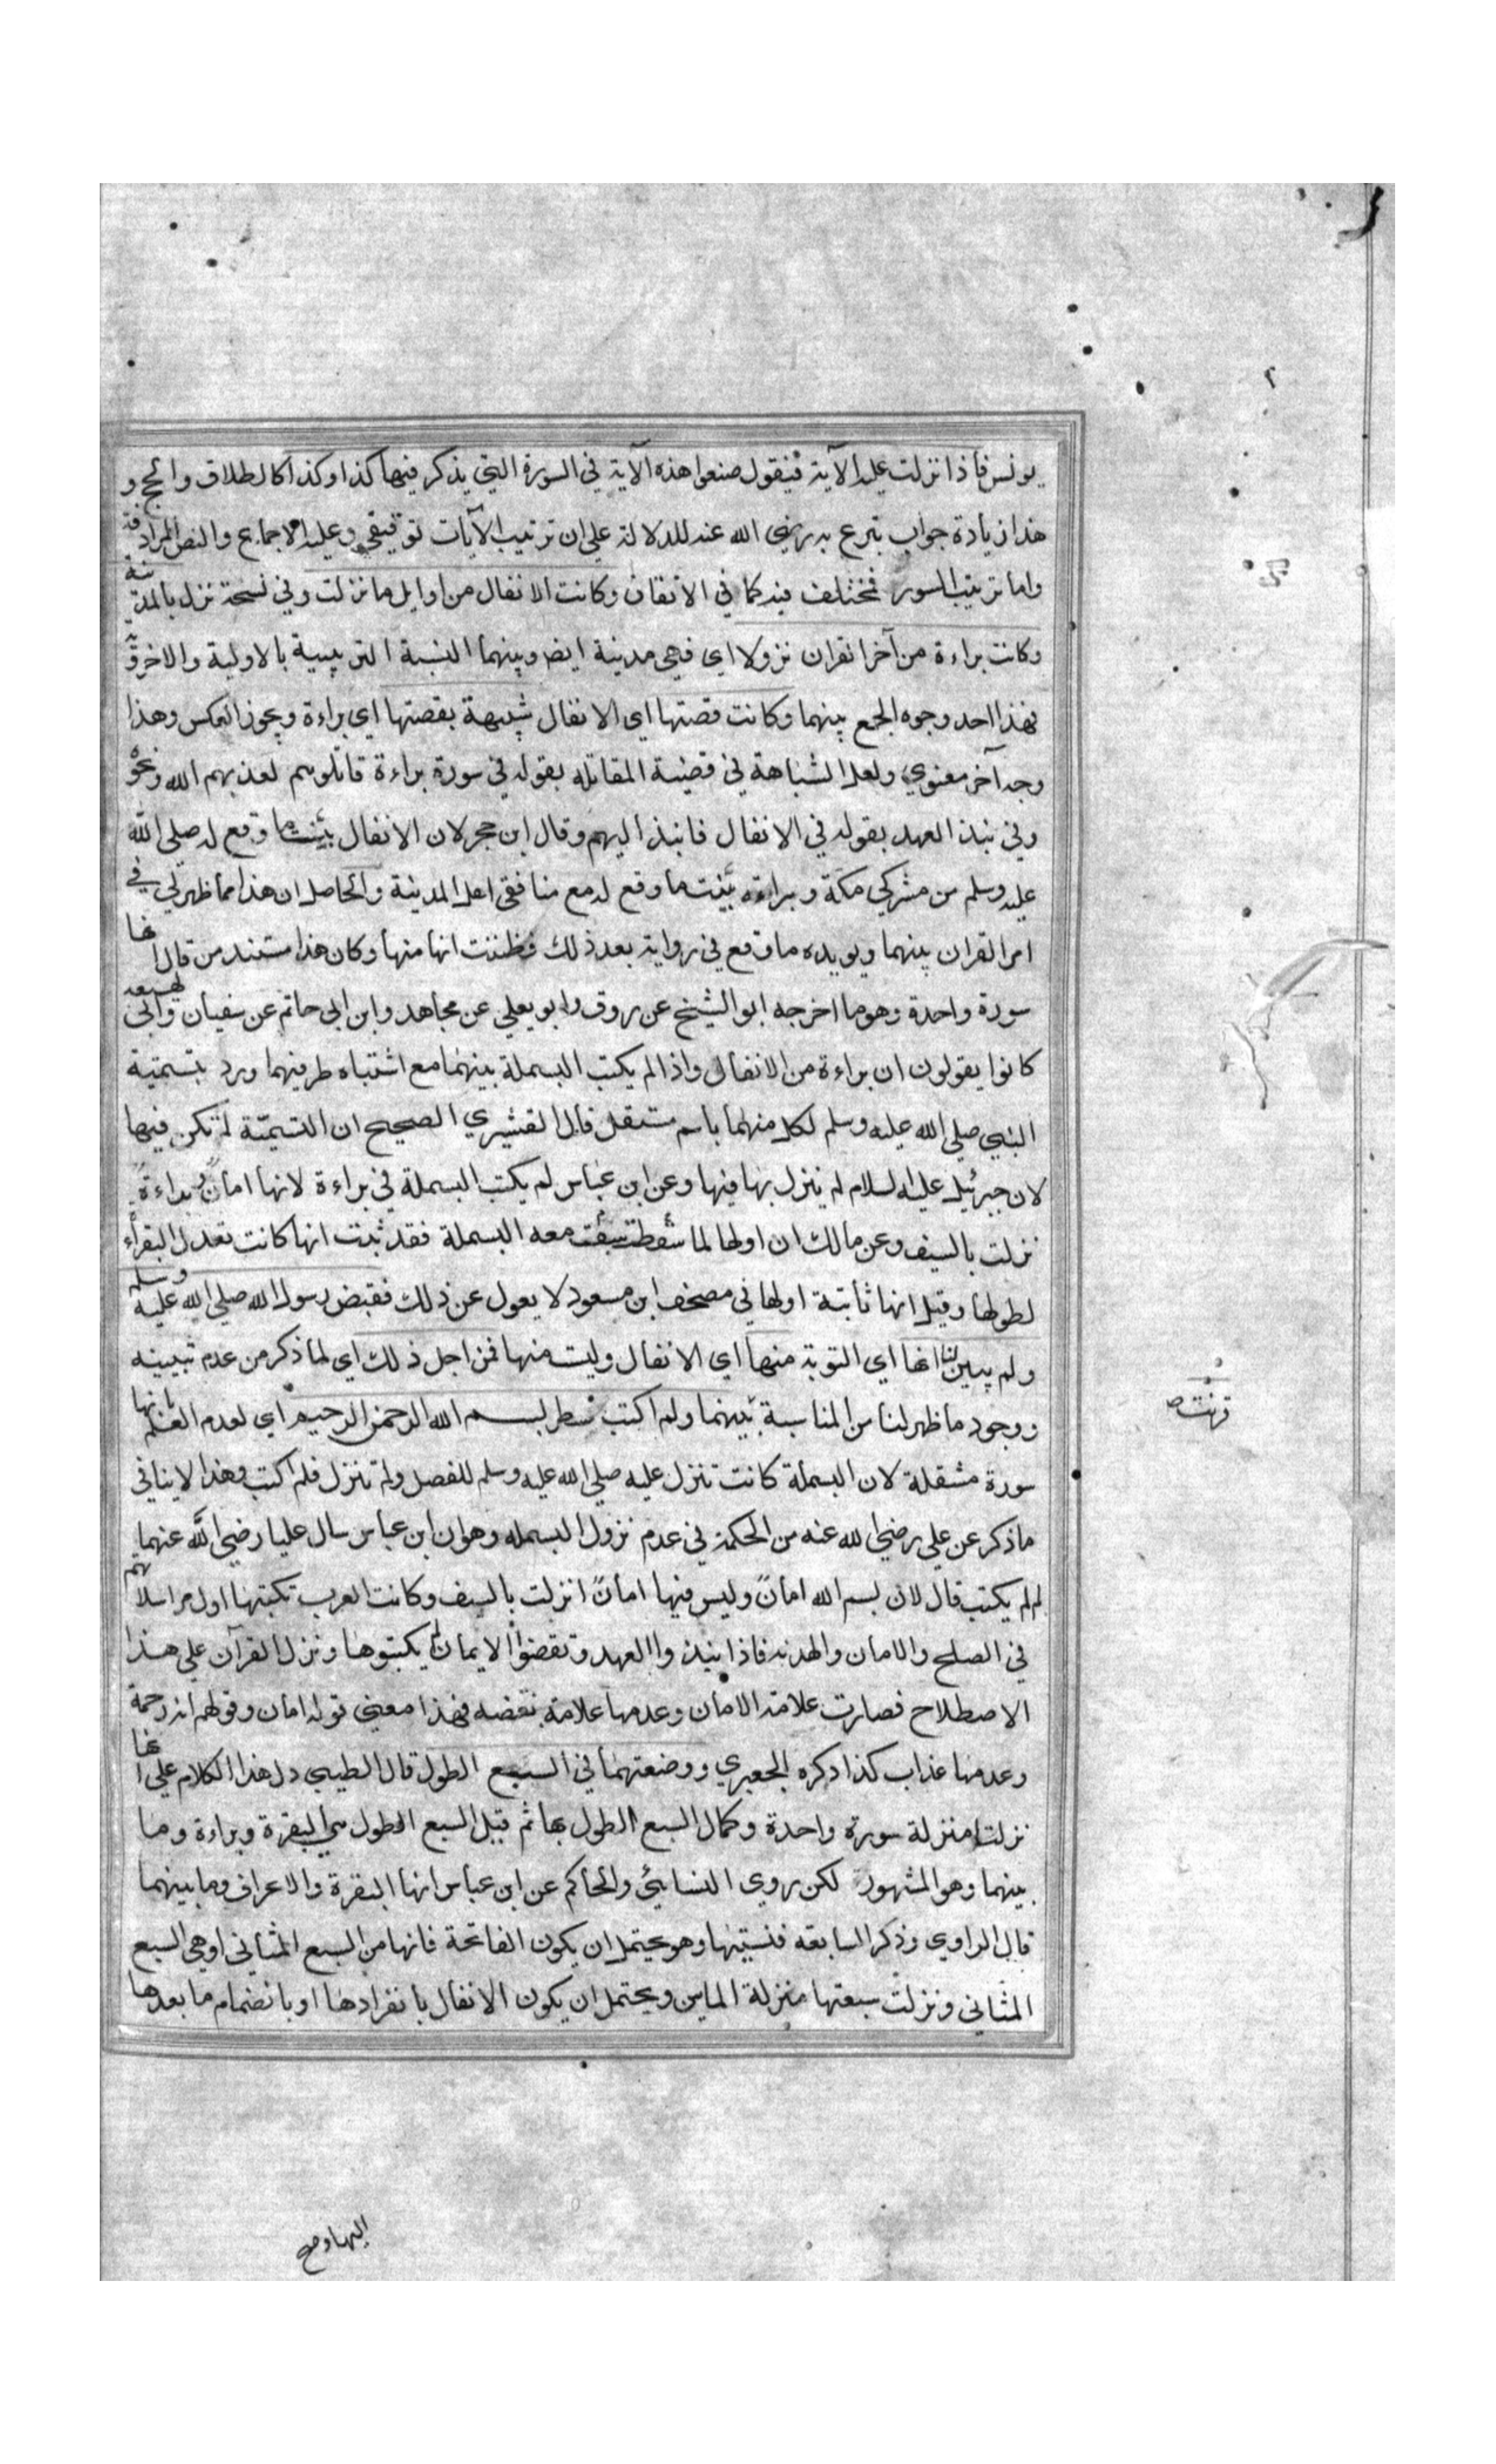 ٢
يونس فاذا نزلت عليه الآية فيقول ضعوا هذه الآية في السورة التي يذكر فيها كذا وكذا كالطلاق والحج و
هذا زيادة جواب تبرع به رضي الله عنه للدلالة على ان ترتيب الآيات توقيفي وعليه الاجماع والنصوص المرادفة
واما ترتيب السور فمختلف فيه كما في الاتقان وكانت الانفال من اوايل ما نزلت وفي نسخة نزل بالمدينة
وكانت براءة من آخر القران نزولا اي فهي مدنية ايضا وبينهما النسبة الترتيبية بالاولية والاخروية
فهذا احد وجوه الجمع بينهما وكانت قصتها اي الانفال شبيهة بقصتها اي براءة ويجوز العكس وهذا
وجه آخر معنوي ولعل الشباهة في قضية المقاتله بقوله في سورة براءة قاتلوهم يعذبهم الله ونحوه
وفي نبذ العهد بقوله في الانفال فانبذ اليهم وقال ابن حجر لان الانفال بينت ما وقع له صلى الله
عليه وسلم من مشركي مكة وبراءة بينت ما وقع له مع منافقي اهل المدينة والحاصل ان هذا مما ظهر لي في
امر القران بينهما ويويده ما وقع في رواية بعد ذلك فظننت انها منها وكان هذا مستند من قال انها
سورة واحدة وهو ما اخرجه ابو الشيخ عن روق وابو يعلي عن مجاهد وابن ابي حاتم عن سفيان وابن لهيعه
كانوا يقولون ان براءة من الانفال واذا لم يكتب البسملة بينهما مع اشتباه طرفيهما ورد بتسمية
النبي صلى الله عليه وسلم لكل منهما باسم مستقل قال القشيري الصحيح ان التسمية لم تكن فيها
لان جبرئيل عليه السلام لم ينزل بها فيها وعن ابن عباس لم يكتب البسملة في براءة لانها امان وبراءة
نزلت بالسيف وعن مالك ان اولها لما سقط سقت معه البسملة فقد ثبت انها كانت تعدل البقرة
لطولها وقيل انها ثابتة اولها في مصحف ابن مسعود لا يعول عن ذلك فقبض رسول الله صلى الله عليه وسلم
ولم يبين لنا انها اي التوبة منها اي الانفال وليت منها فمن اجل ذلك اي لما ذكر من عدم تبيينه
ووجود ما ظهر لنا من المناسبة بينهما ولم اكتب سطر بسم الله الرحمن الرحيم اي لعدم العلم بانها
سورة مشقلة لان البسملة كانت تنزل عليه صلى الله عليه وسلم للفصل ولم تنزل فلم اكتب وهذا لا ينافي
ما ذكر عن علي رضي الله عنه من الحكمة في عدم نزول البسمله وهو ان ابن عباس سال عليا رضي الله عنهما
لم لم يكتب قال لان بسم الله امان وليس فيها امان انزلت بالسيف وكانت العرب تكتبها اول مراسلاتهم
في الصلح والامان والهدنه فاذا نبذوا العهد ونقضوا الايمان لم يكتبوها ونزل القرآن على هذا
الاصطلاح فصارت علامة الامان وعدمها علامة نقضه فهذا معني قوله امان وقولهم انه رحمة
وعدمها عذاب كذا ذكره الجعبري ووضعتهما في السبع الطول قال الطيبي دل هذا الكلام على انها
نزلتا منزلة سورة واحدة وكمال السبع الطول بها ثم قيل السبع الطول هي البقرة وبراءة وما
بينهما وهو المشهور لكن روى النسائي والحاكم عن ابن عباس انها البقرة والاعراف وما بينهما
قال الراوي وذكر السابعة فنسيتها وهو يحتمل ان يكون الفاتحة فانها من السبع المثاني او هي السبع
المثاني ونزلت سبعتها منزلة الماين ويحتمل ان يكون الانفال بانفرادها او بانضمام ما بعدها